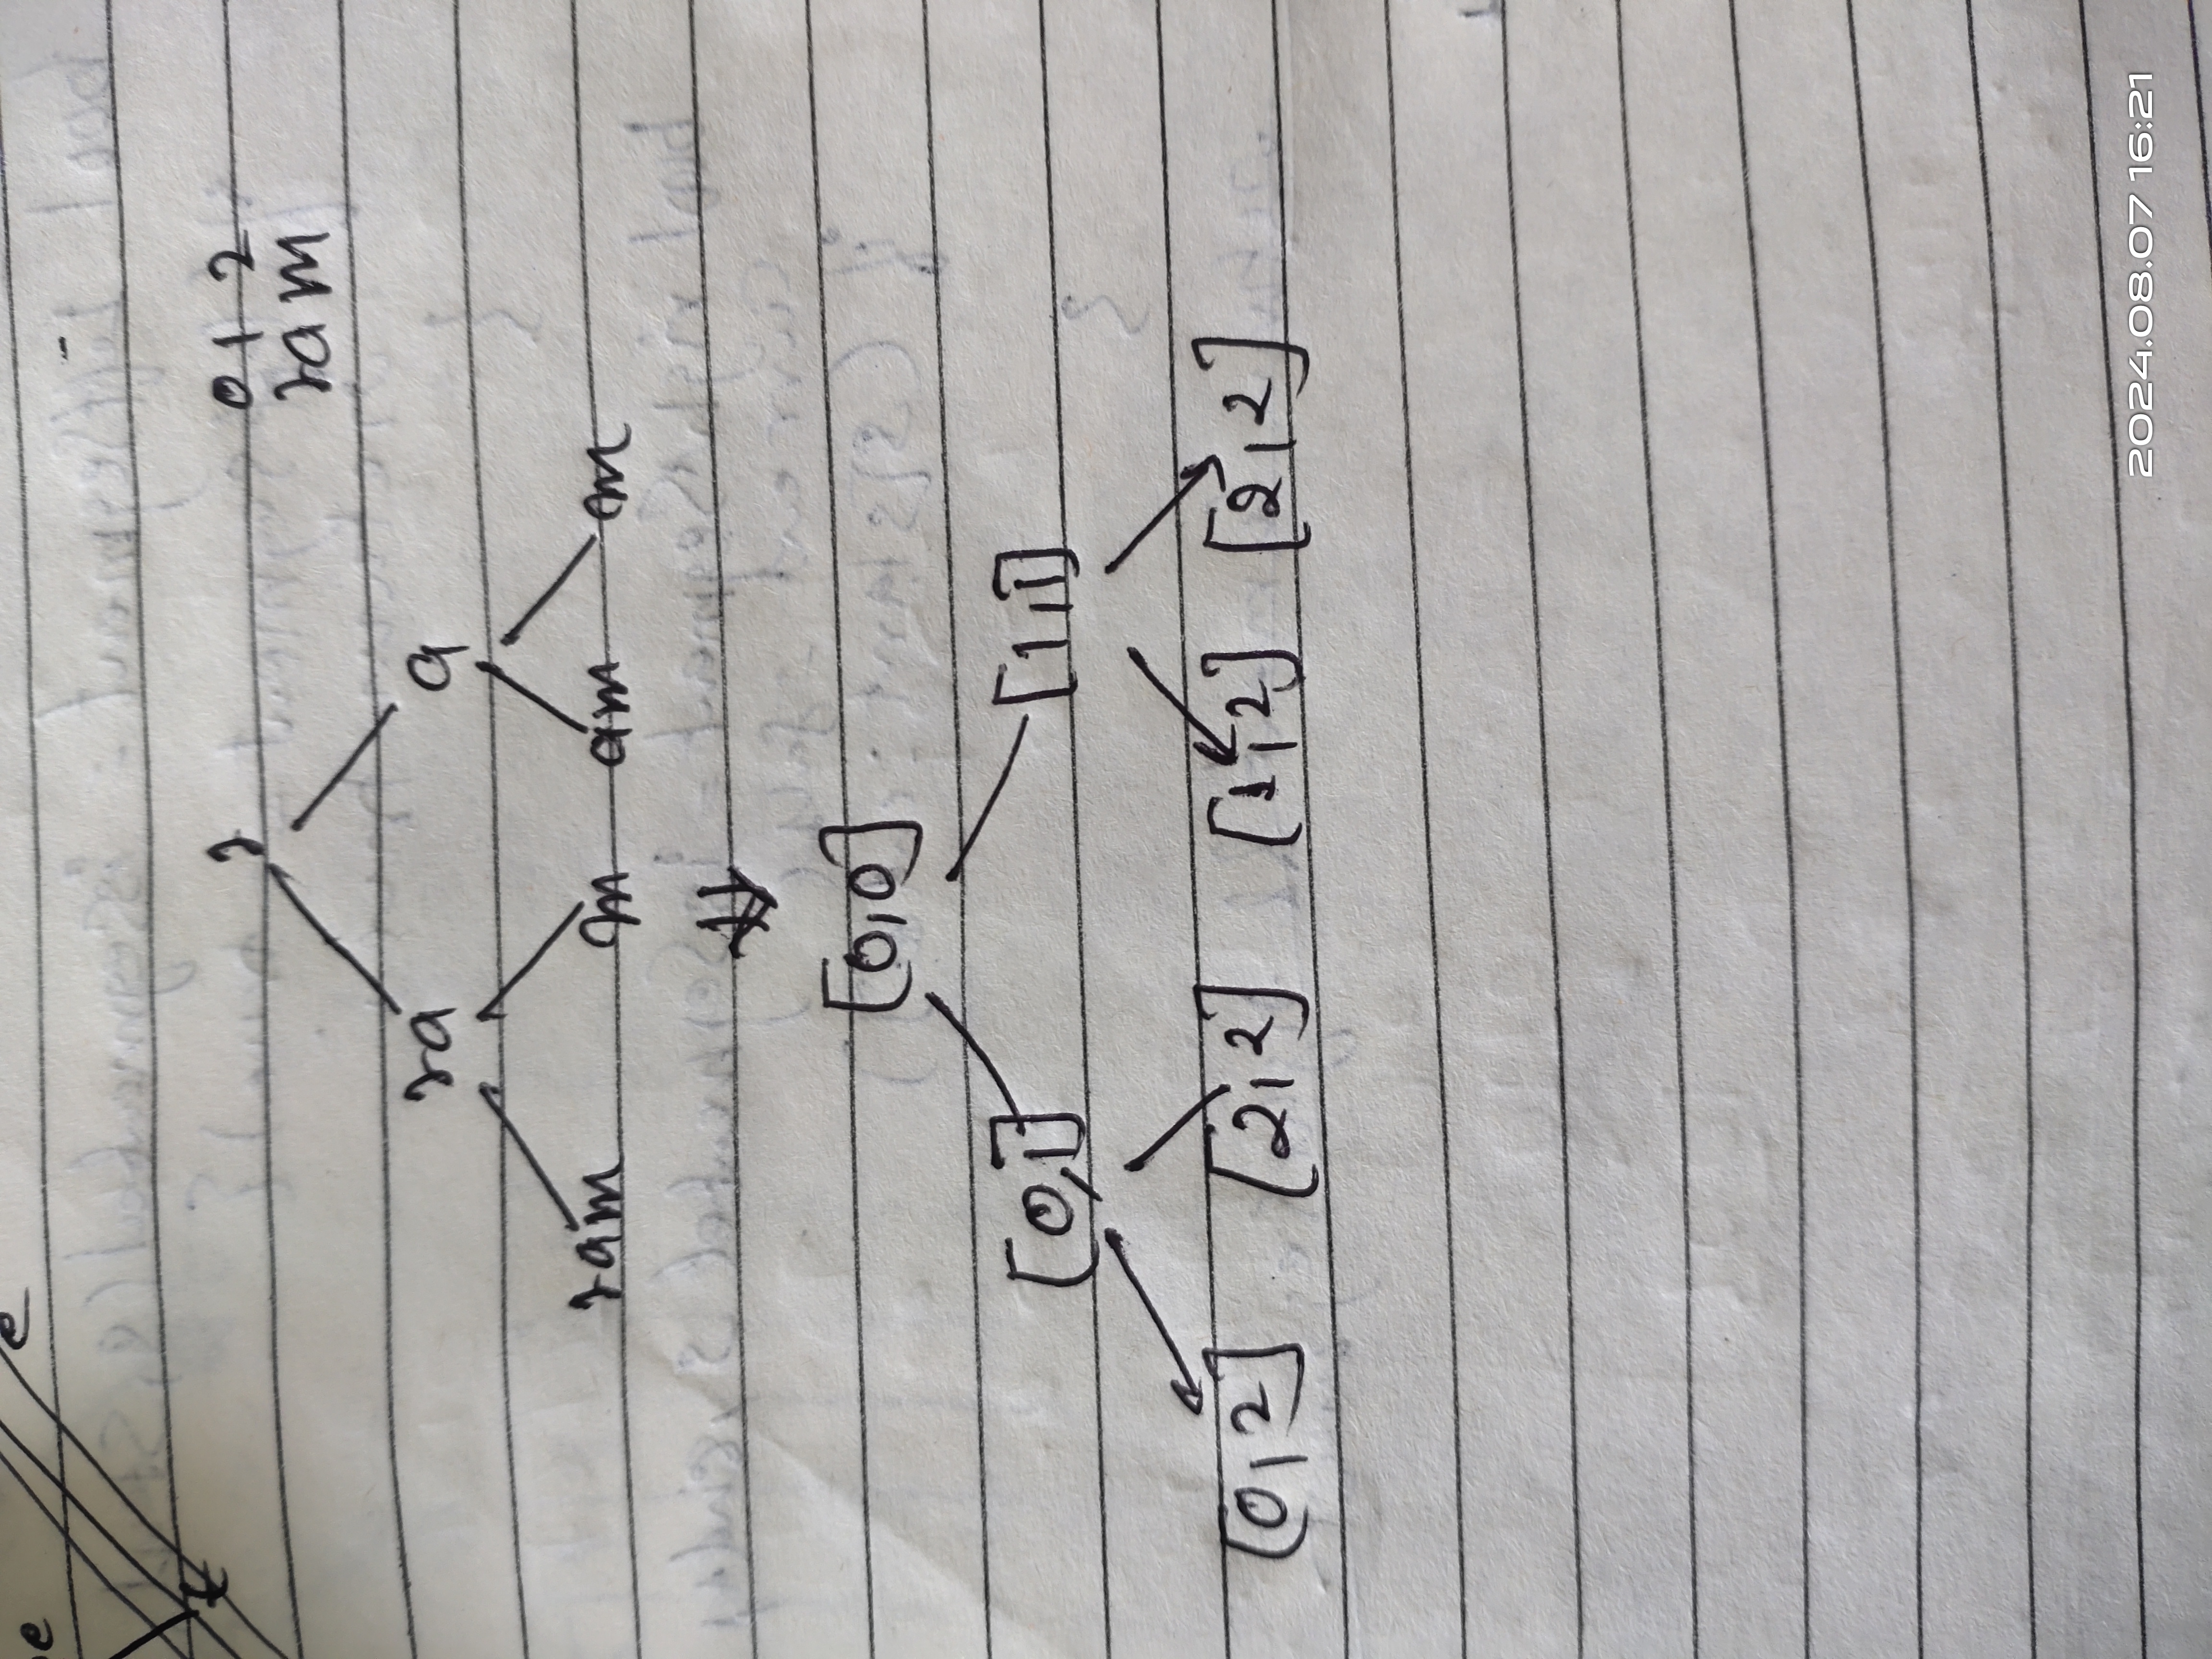 e
t
r
0 1 2
ram
ra a
ram m am m
[0,0]
[0,1] [1,1]
[0,2] [2,2] [1,2] [2,2]
2024.08.07 16:21